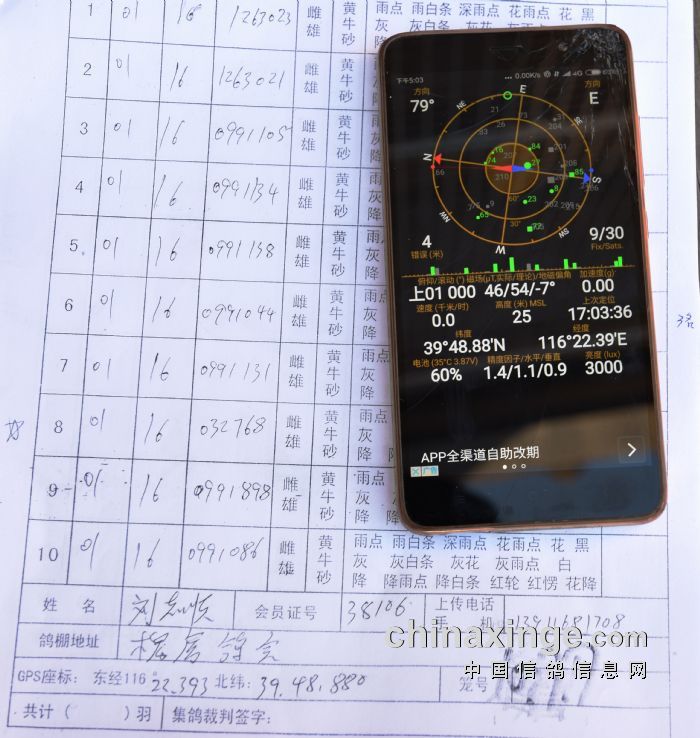 1 01 16 1263023 雌雄 黄牛砂 雨点 雨白条 深雨点 花雨点 花 黑
2 01 16 1263021 雌雄 黄牛砂
3 01 16 0991105 雌雄 黄牛砂
4 01 16 0991134 雌雄 黄牛砂
5 01 16 0991138 雌雄 黄牛砂
6 01 16 0991044 雌雄 黄牛砂 雨点 灰 降
7 01 16 0991131 雌雄 黄牛砂 雨点 灰 降
8 01 16 032768 雌雄 黄牛砂 雨点 灰 降
9 01 16 0991898 雌雄 黄牛砂 雨点 灰 降
10 01 16 0991086 雌雄 黄牛砂 雨点 雨白条 深雨点 花雨点 花 黑
灰 灰白条 灰花 灰雨点 白
降 降雨点 降白条 红轮 红愣 花降
姓 名 刘志顺 会员证号 38106 上传电话
手 机 13911681708
鸽棚地址
GPS座标: 东经116°22.393 北纬: 39.48.880 笼号
共计( )羽 集鸽裁判签字:
下午5:03 0.00K/s 4G
方向 79°
方向 E
N E S W NE SE NW SW
4 错误 (米)
9/30 Fix/Sats.
俯仰/滚动 (°) 磁场(μT,实际/理论)/地磁偏角 加速度(g)
上01 000 46/54/-7° 0.00
速度 (千米/时) 高度 (米) MSL 上次定位
0.0 25 17:03:36
纬度 经度
39°48.88'N 116°22.39'E
电池 (35°C 3.87V) 精度因子/水平/垂直 亮度 (lux)
60% 1.4/1.1/0.9 3000
APP全渠道自助改期
广告
chinaxinge.com
中国信鸽信息网